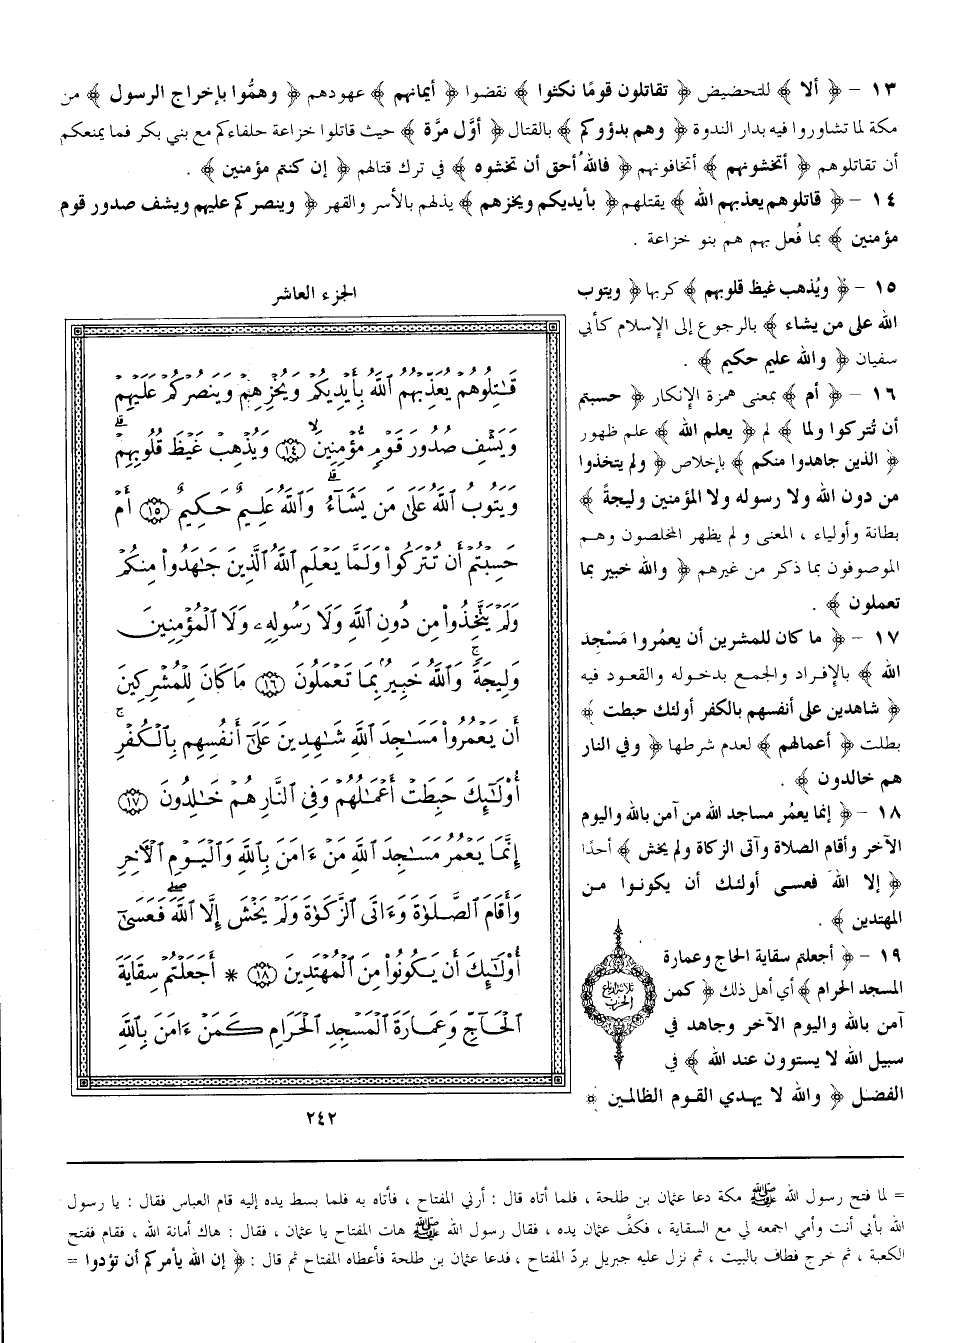 ١٣ - ﴿ ألا ﴾ للتحضيض ﴿ تقاتلون قومًا نكثوا ﴾ نقضوا ﴿ أيمانهم ﴾ عهودهم ﴿ وهمُّوا بإخراج الرسول ﴾ من
مكة لما تشاوروا فيه بدار الندوة ﴿ وهم بدؤوكم ﴾ بالقتال ﴿ أوَّل مرَّة ﴾ حيث قاتلوا خزاعة حلفاءكم مع بني بكر فما يمنعكم
أن تقاتلوهم ﴿ أتخشونهم ﴾ أتخافونهم ﴿ فاللهُ أحق أن تخشوه ﴾ في ترك قتالهم ﴿ إن كنتم مؤمنين ﴾ .
١٤ - ﴿ قاتلوهم يعذبهم الله ﴾ يقتلهم ﴿ بأيديكم ويخزهم ﴾ يذلهم بالأسر والقهر ﴿ وينصركم عليهم ويشف صدور قوم
مؤمنين ﴾ بما فُعل بهم هم بنو خزاعة .
١٥ - ﴿ ويُذهب غيظ قلوبهم ﴾ كربها ﴿ ويتوب
الله على من يشاء ﴾ بالرجوع إلى الإسلام كأبي
سفيان ﴿ والله عليم حكيم ﴾ .
١٦ - ﴿ أم ﴾ بمعنى همزة الإنكار ﴿ حسبتم
أن تُتركوا ولما ﴾ لم ﴿ يعلم الله ﴾ علم ظهور
﴿ الذين جاهدوا منكم ﴾ بإخلاص ﴿ ولم يتخذوا
من دون الله ولا رسوله ولا المؤمنين وليجةً ﴾
بطانة وأولياء ، المعنى ولم يظهر المخلصون وهم
الموصوفون بما ذكر من غيرهم ﴿ والله خبير بما
تعملون ﴾ .
١٧ - ﴿ ما كان للمشركين أن يعمُروا مَسْجد
الله ﴾ بالإفراد والجمع بدخوله والقعود فيه
﴿ شاهدين على أنفسهم بالكفر أولئك حبطت ﴾
بطلت ﴿ أعمالهم ﴾ لعدم شرطها ﴿ وفي النار
هم خالدون ﴾ .
١٨ - ﴿ إنما يعمُر مساجد الله من آمن بالله واليوم
الآخر وأقام الصلاة وآتى الزكاة ولم يخش ﴾ أحدًا
﴿ إلا الله فعسى أولئك أن يكونوا من
المهتدين ﴾ .
١٩ - ﴿ أجعلتم سقاية الحاج وعمارة
المسجد الحرام ﴾ أي أهل ذلك ﴿ كمن
آمن بالله واليوم الآخر وجاهد في
سبيل الله لا يستوون عند الله ﴾ في
الفضل ﴿ والله لا يهدي القوم الظالمين ﴾
ثلاثة أرباع
الحزب
الجزء العاشر
قَـٰتِلُوهُمْ يُعَذِّبْهُمُ ٱللَّهُ بِأَيْدِيكُمْ وَيُخْزِهِمْ وَيَنصُرْكُمْ عَلَيْهِمْ
وَيَشْفِ صُدُورَ قَوْمٍ مُّؤْمِنِينَ ﴿١٤﴾ وَيُذْهِبْ غَيْظَ قُلُوبِهِمْ ۗ
وَيَتُوبُ ٱللَّهُ عَلَىٰ مَن يَشَآءُ ۗ وَٱللَّهُ عَلِيمٌ حَكِيمٌ ﴿١٥﴾ أَمْ
حَسِبْتُمْ أَن تُتْرَكُوا۟ وَلَمَّا يَعْلَمِ ٱللَّهُ ٱلَّذِينَ جَـٰهَدُوا۟ مِنكُمْ
وَلَمْ يَتَّخِذُوا۟ مِن دُونِ ٱللَّهِ وَلَا رَسُولِهِۦ وَلَا ٱلْمُؤْمِنِينَ
وَلِيجَةً ۚ وَٱللَّهُ خَبِيرٌۢ بِمَا تَعْمَلُونَ ﴿١٦﴾ مَا كَانَ لِلْمُشْرِكِينَ
أَن يَعْمُرُوا۟ مَسَـٰجِدَ ٱللَّهِ شَـٰهِدِينَ عَلَىٰٓ أَنفُسِهِم بِٱلْكُفْرِ ۚ
أُو۟لَـٰٓئِكَ حَبِطَتْ أَعْمَـٰلُهُمْ وَفِى ٱلنَّارِ هُمْ خَـٰلِدُونَ ﴿١٧﴾
إِنَّمَا يَعْمُرُ مَسَـٰجِدَ ٱللَّهِ مَنْ ءَامَنَ بِٱللَّهِ وَٱلْيَوْمِ ٱلْـَٔاخِرِ
وَأَقَامَ ٱلصَّلَوٰةَ وَءَاتَى ٱلزَّكَوٰةَ وَلَمْ يَخْشَ إِلَّا ٱللَّهَ ۖ فَعَسَىٰٓ
أُو۟لَـٰٓئِكَ أَن يَكُونُوا۟ مِنَ ٱلْمُهْتَدِينَ ﴿١٨﴾ * أَجَعَلْتُمْ سِقَايَةَ
ٱلْحَآجِّ وَعِمَارَةَ ٱلْمَسْجِدِ ٱلْحَرَامِ كَمَنْ ءَامَنَ بِٱللَّهِ
٢٤٢
= لما فتح رسول الله ﷺ مكة دعا عثمان بن طلحة ، فلما أتاه قال : أرني المفتاح ، فأتاه به فلما بسط يده إليه قام العباس فقال : يا رسول
الله بأبي أنت وأمي اجمعه لي مع السقاية ، فكفَّ عثمان يده ، فقال رسول الله ﷺ هات المفتاح يا عثمان ، فقال : هاك أمانة الله ، فقام ففتح
الكعبة ، ثم خرج فطاف بالبيت ، ثم نزل عليه جبريل بردّ المفتاح ، فدعا عثمان بن طلحة فأعطاه المفتاح ثم قال : ﴿ إن الله يأمركم أن تؤدوا =